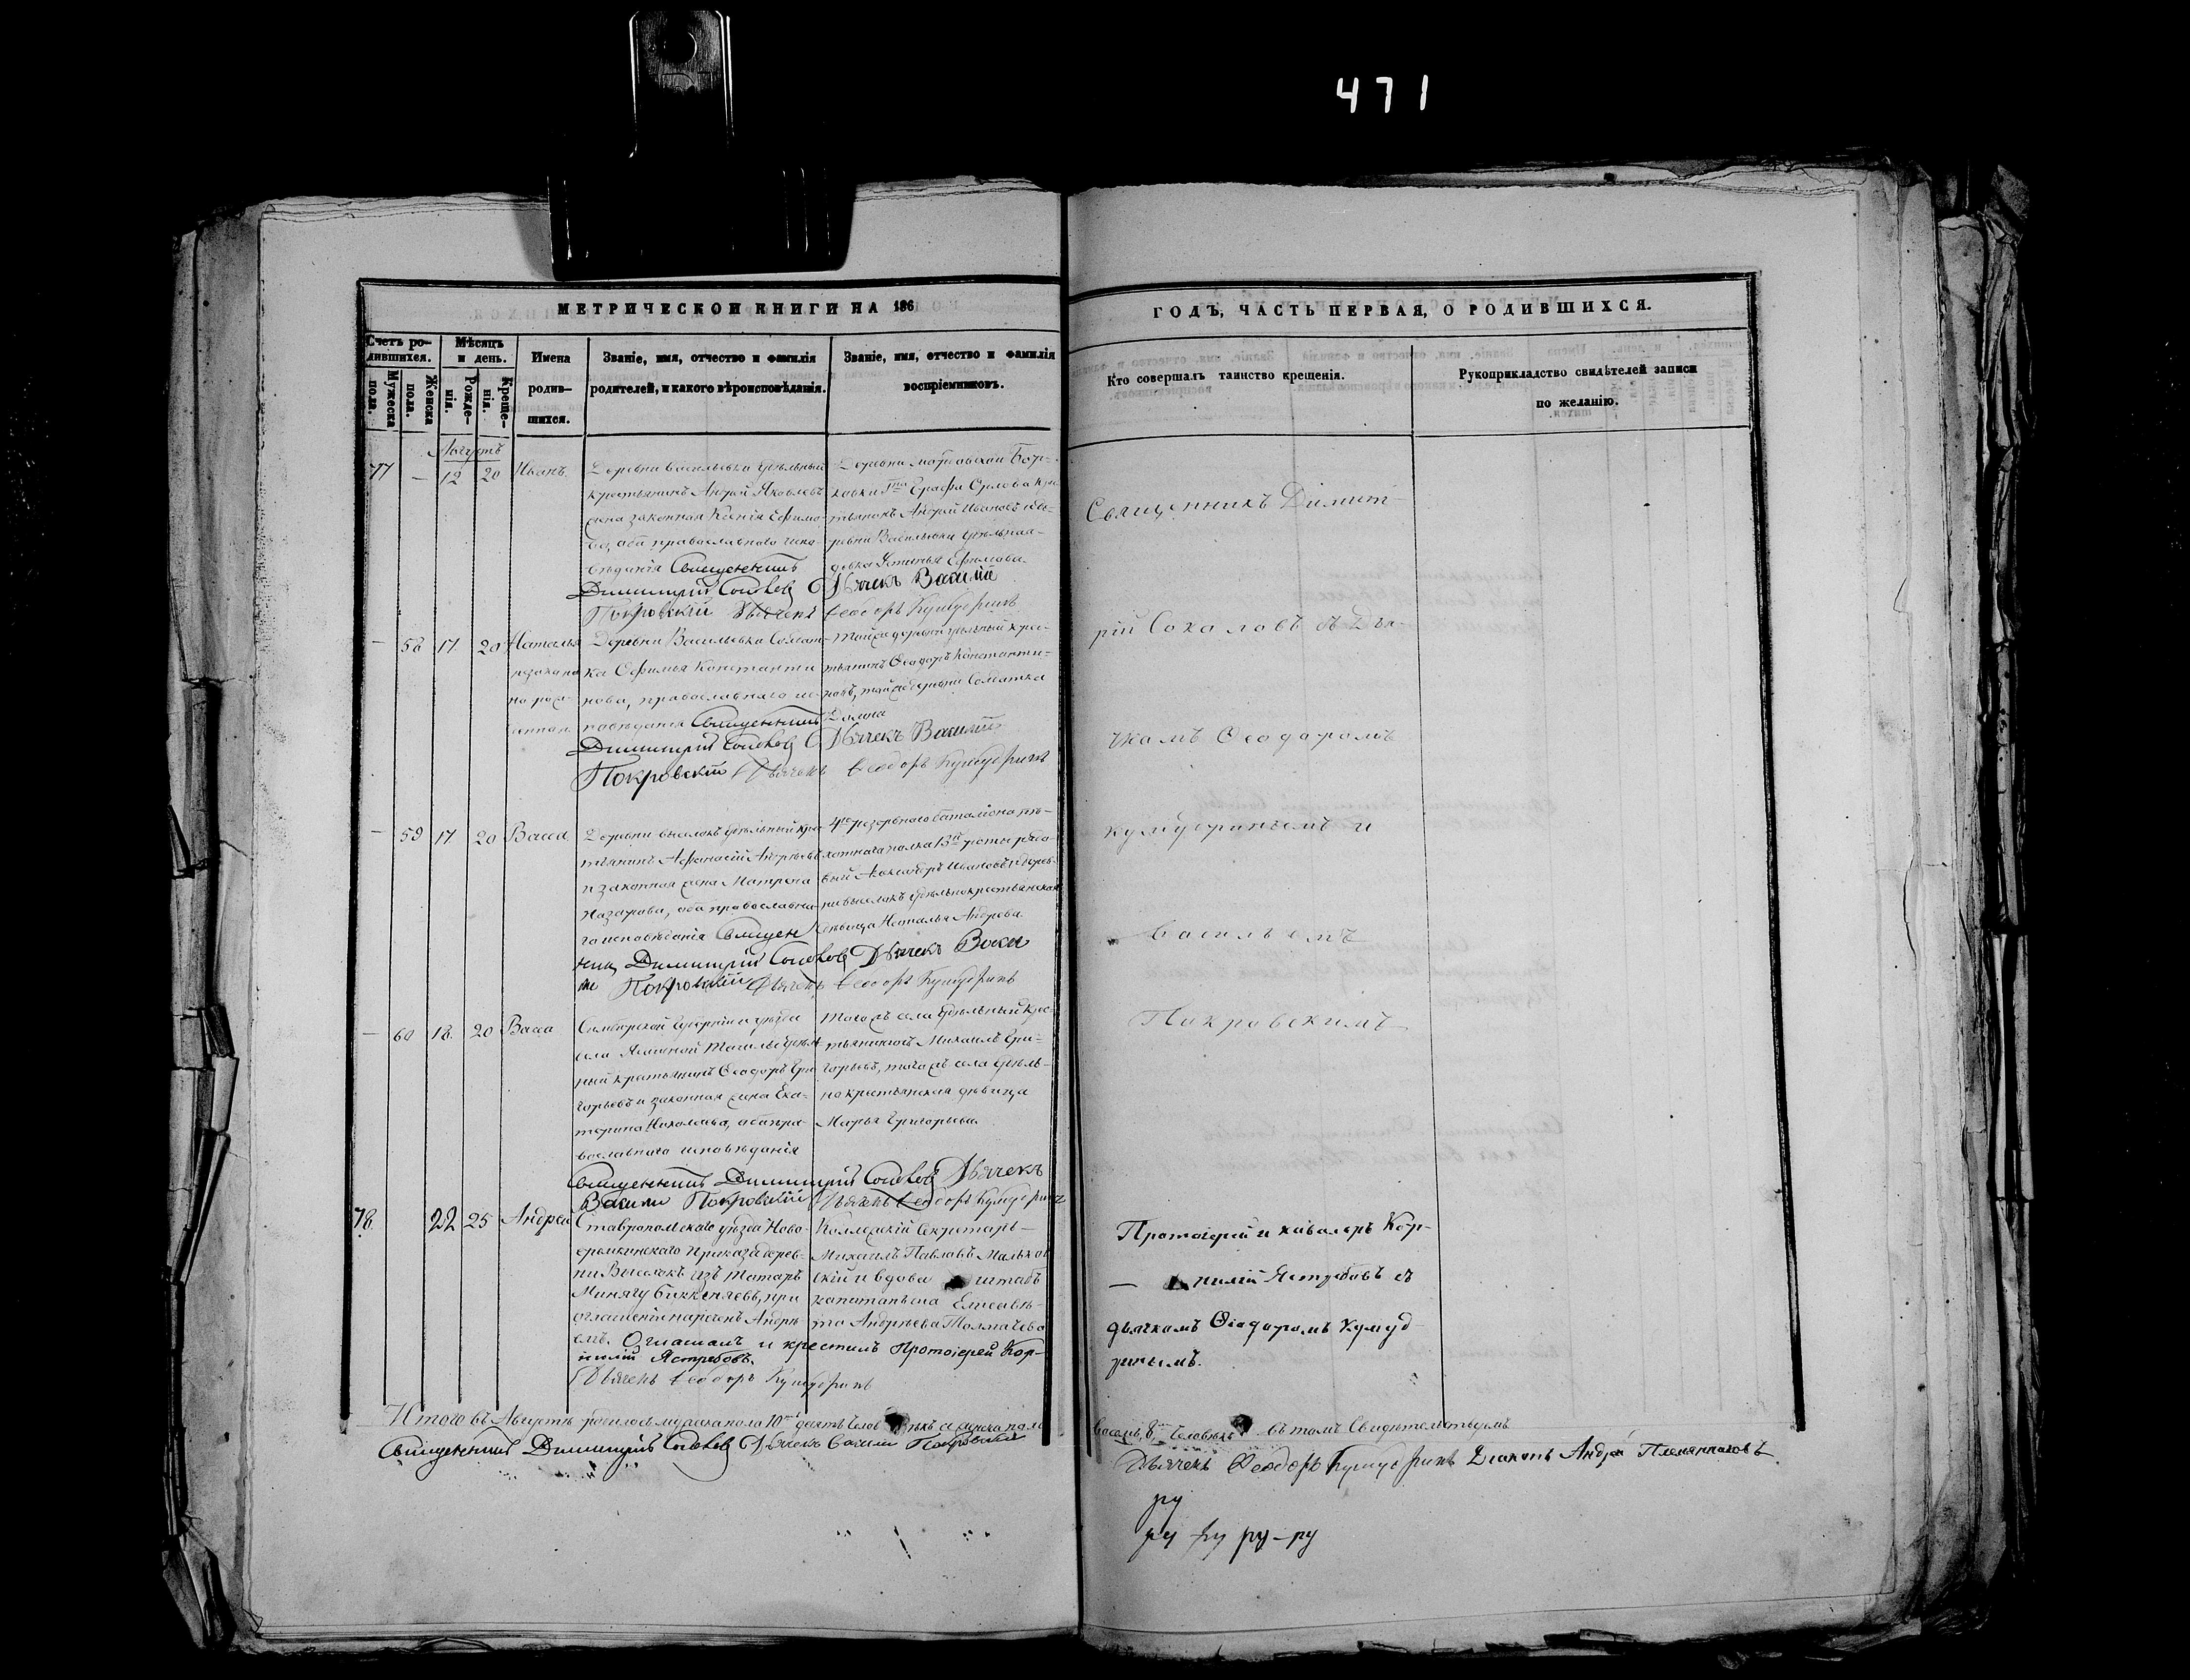 471
МЕТРИЧЕСКОЙ КНИГИ НА 186
ГОДЪ, ЧАСТЬ ПЕРВАЯ, О РОДИВШИХСЯ.
Счетъ ро-
дившихся.
Мужеска
пола.
Женска
пола.
Мѣсяцъ
и день.
Рожде-
нія.
Креще-
нія.
Имена
родив-
шихся.
Званіе, имя, отчество и фамилія
родителей, и какого вѣроисповѣданія.
Званіе, имя, отчество и фамилія
воспріемниковъ.
Кто совершалъ таинство крещенія.
Рукоприкладство свидѣтелей записи
по желанію.
Августъ
77 – 12 20 Иванъ
Деревни Васильевки удѣльный
крестьянинъ Андрей Яковлевъ
жена законная Ксенія Ефимо-
ва, оба православнаго испо-
вѣданія Священникъ
Димитрій Соколов Дьячекъ Василій
Покровскій Дьячекъ Ѳеодоръ Кумудринъ
Андрей Ивановъ и де-
ревни Васильевки удѣльная
вдова Устинья Ефимова.
– 58 17 20 Наталья
незакон
но рож-
денная
Деревни Васильевки Солдат-
ка Ефимья Константи
нова, православнаго ис-
повѣданія Священникъ
Димитрій Соколов Дьячекъ Василий
Покровскій Дьячекъ Ѳеодоръ Кумудринъ
Той же деревни удѣльный крес-
тьянинъ Ѳеодоръ Константи-
новъ, той же деревни Солдатка
– 59 17 20 Васса
Деревни выселокъ удѣльный крес
тьянинъ Афанасій Андреевъ
и законная жена Матрена
Назарова, оба православна-
го исповѣданія Священ
ник Димитрій Соколов Дьячекъ Васи
лий Покровскій Дьячекъ Ѳеодоръ Кумудринъ
4го резервнаго баталіона пѣ-
хотнаго полка 13й роты рядо-
вый Александръ Ивановъ и дерев-
ни выселокъ удѣльнокрестьянская
дѣвица Наталья Андреева.
– 60 18 20 Васса
Симбирской Губерніи и уѣзда
села Ясашной Ташлы удѣль
ный крестьянинъ Ѳеодоръ Гри
горьевъ и законная жена Ека-
терина Николаева, оба пра-
вославнаго исповѣданія
Священникъ Димитрій Соколов Дьячекъ
Василий Покровскій Дьячекъ Ѳеодоръ Кумудринъ
Того жъ села удѣльный крес-
тьянинъ Михаилъ Гри-
горьевъ, того жъ села удѣль-
но крестьянская дѣвица
Марья Григорьева.
78 22 25 Андрей
Ставропольскаго уѣзда Ново-
еремкинскаго Приказа дерев-
ни Выселокъ изъ татаръ
Минягу Биккеняевъ, при
оглашеніи нареченъ Андре-
емъ. Оглашалъ и крестилъ Протоіерей Кор-
нилій Ястребовъ.
Дьячекъ Ѳеодоръ Кумудринъ
Коллежскій Секретарь
Михаилъ Павловъ Мальхов
скій и вдова штабъ
капитанша Елисаве-
та Андреева Толмачева
Священникъ Димит-
рій Соколовъ съ Дья-
чкомъ Ѳеодоромъ
Кумудринымъ и
Васильемъ
Покровскимъ
Протоіерей и кавалеръ Кор-
нилій Ястребовъ съ
дьячкомъ Ѳеодоромъ Кумуд-
ринымъ.
Итого въ Августѣ родилось мужеска пола 10ть десять человѣкъ а женска пола
восемь, 8 человѣкъ въ томъ Свидѣтельствуемъ
Священникъ Димитрій Соколов Дьячекъ Василий Покровский
Дьячекъ Ѳеодоръ Кумудринъ Діаконъ Андрей Племянниковъ.
ру
ру ру ру-ру